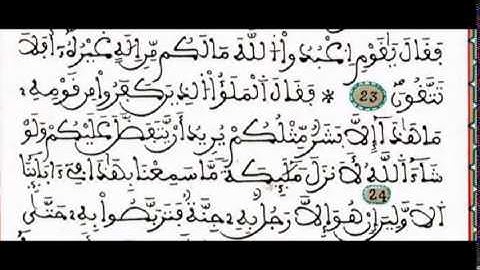 فَقَالَ يَٰقَوْمِ اِ۟عْبُدُوا۟ اُ۬للَّهَ مَا لَكُم مِّنِ اِلَٰهٍ غَيْرُهُۥٓ أَفَلَا
تَتَّقُونَ 23 * فَقَالَ اَ۬لْمَلَؤُا۟ اُ۬لذِينَ كَفَرُوا۟ مِن قَوْمِهِۦ
مَا هَٰذَآ إِلَّا بَشَرٌ مِّثْلُكُمْ يُرِيدُ أَنْ يَّتَفَضَّلَ عَلَيْكُمْ وَلَوْ
شَآءَ اَ۬للَّهُ لَأَنزَلَ مَلَٰٓئِكَةً مَّا سَمِعْنَا بِهَٰذَا فِىٓ ءَابَآئِنَا
اَ۬لَاوَّلِينَ 24 إِنْ هُوَ إِلَّا رَجُلٌۢ بِهِۦ جِنَّةٌ فَتَرَبَّصُوا۟ بِهِۦ حَتَّىٰ